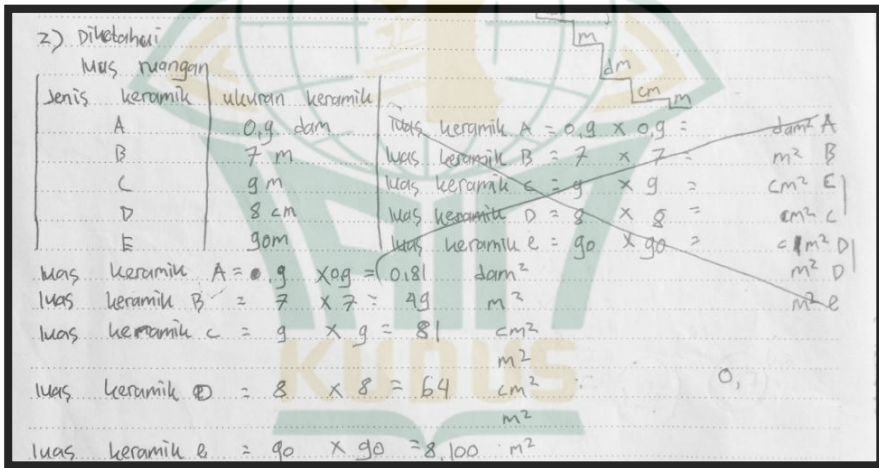 2) Diketahui
luas ruangan
m
dm
cm
m
Jenis keramik ukuran keramik
A 0,9 dam luas keramik A = 0,9 x 0,9 = dam² A
B 7 m luas keramik B = 7 x 7 = m² B
C 9 m luas keramik c = 9 x 9 = cm² E
D 8 cm luas keramik D = 8 x 8 = cm² c
E 90m luas keramik e = 90 x 90 = m² D
m² D
m² e
luas keramik A = 0,9 x 0,9 = 0,81 dam²
luas keramik B = 7 x 7 = 49 m²
luas keramik c = 9 x 9 = 81 cm²
m²
luas keramik D = 8 x 8 = 64 cm² 0,
m²
luas keramik e = 90 x 90 = 8,100 m²
KUDUS